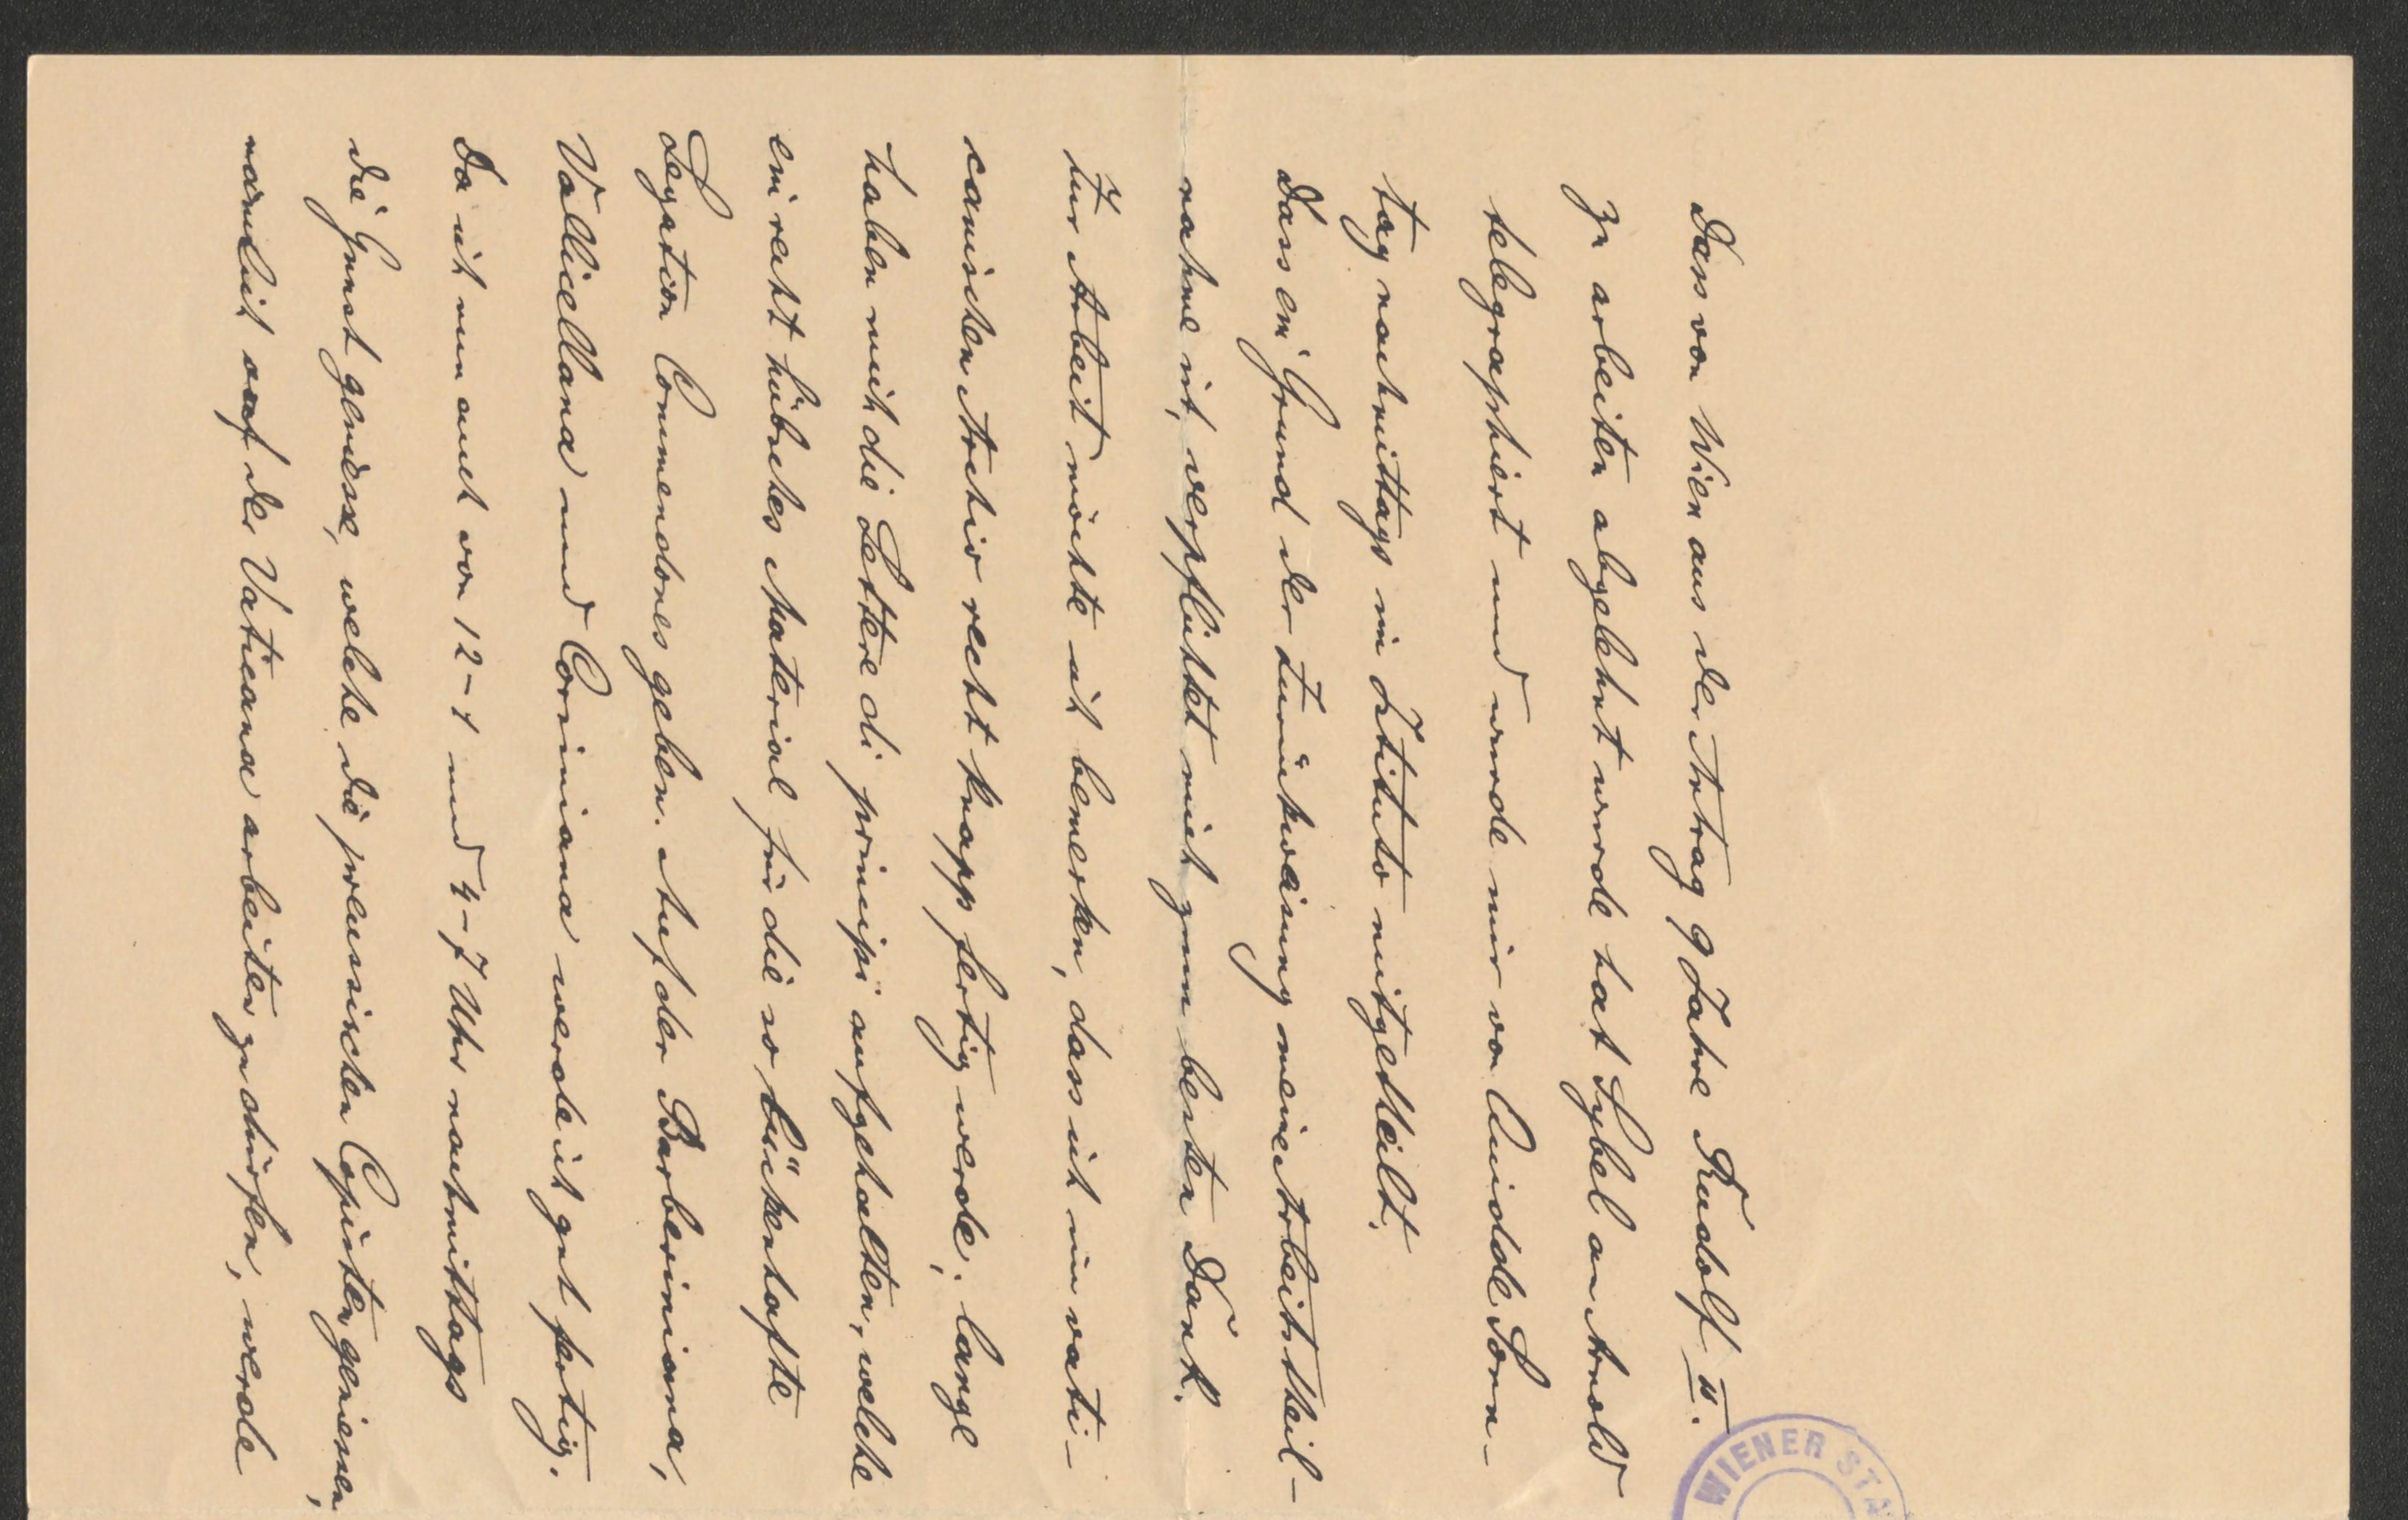 Dass von Wien aus der Antrag 9 Jahre Rudolf II.
zu arbeiten abgelehnt wurde hat Sybel an Arnold
telegraphiert und wurde mir von Quidde Sonn-
tag nachmittags im Istituto mitgetheilt.
Dass ein Grund der Zurückweisung meine Arbeitstheil-
nahme ist, verpflichtet mich zum besten Dank.
Zur Arbeit möchte ich bemerken, dass ich im vati-
canischen Archiv recht knapp fertig werde; lange
haben mich die Lettere di principi aufgehalten, welche
ein recht hübsches Material für die so lückenhafte
Legation Commendones geben. Auf der Barberiniana,
Vallicellana und Corsiniana werde ich gut fertig.
Da ich nun auch von 12-1 und 4-7 Uhr nachmittags
die Gunst geniesse, welche die preussischen Copisten geniessen,
nämlich auf der Vaticana arbeiten zu dürfen, werde
WIENER STA